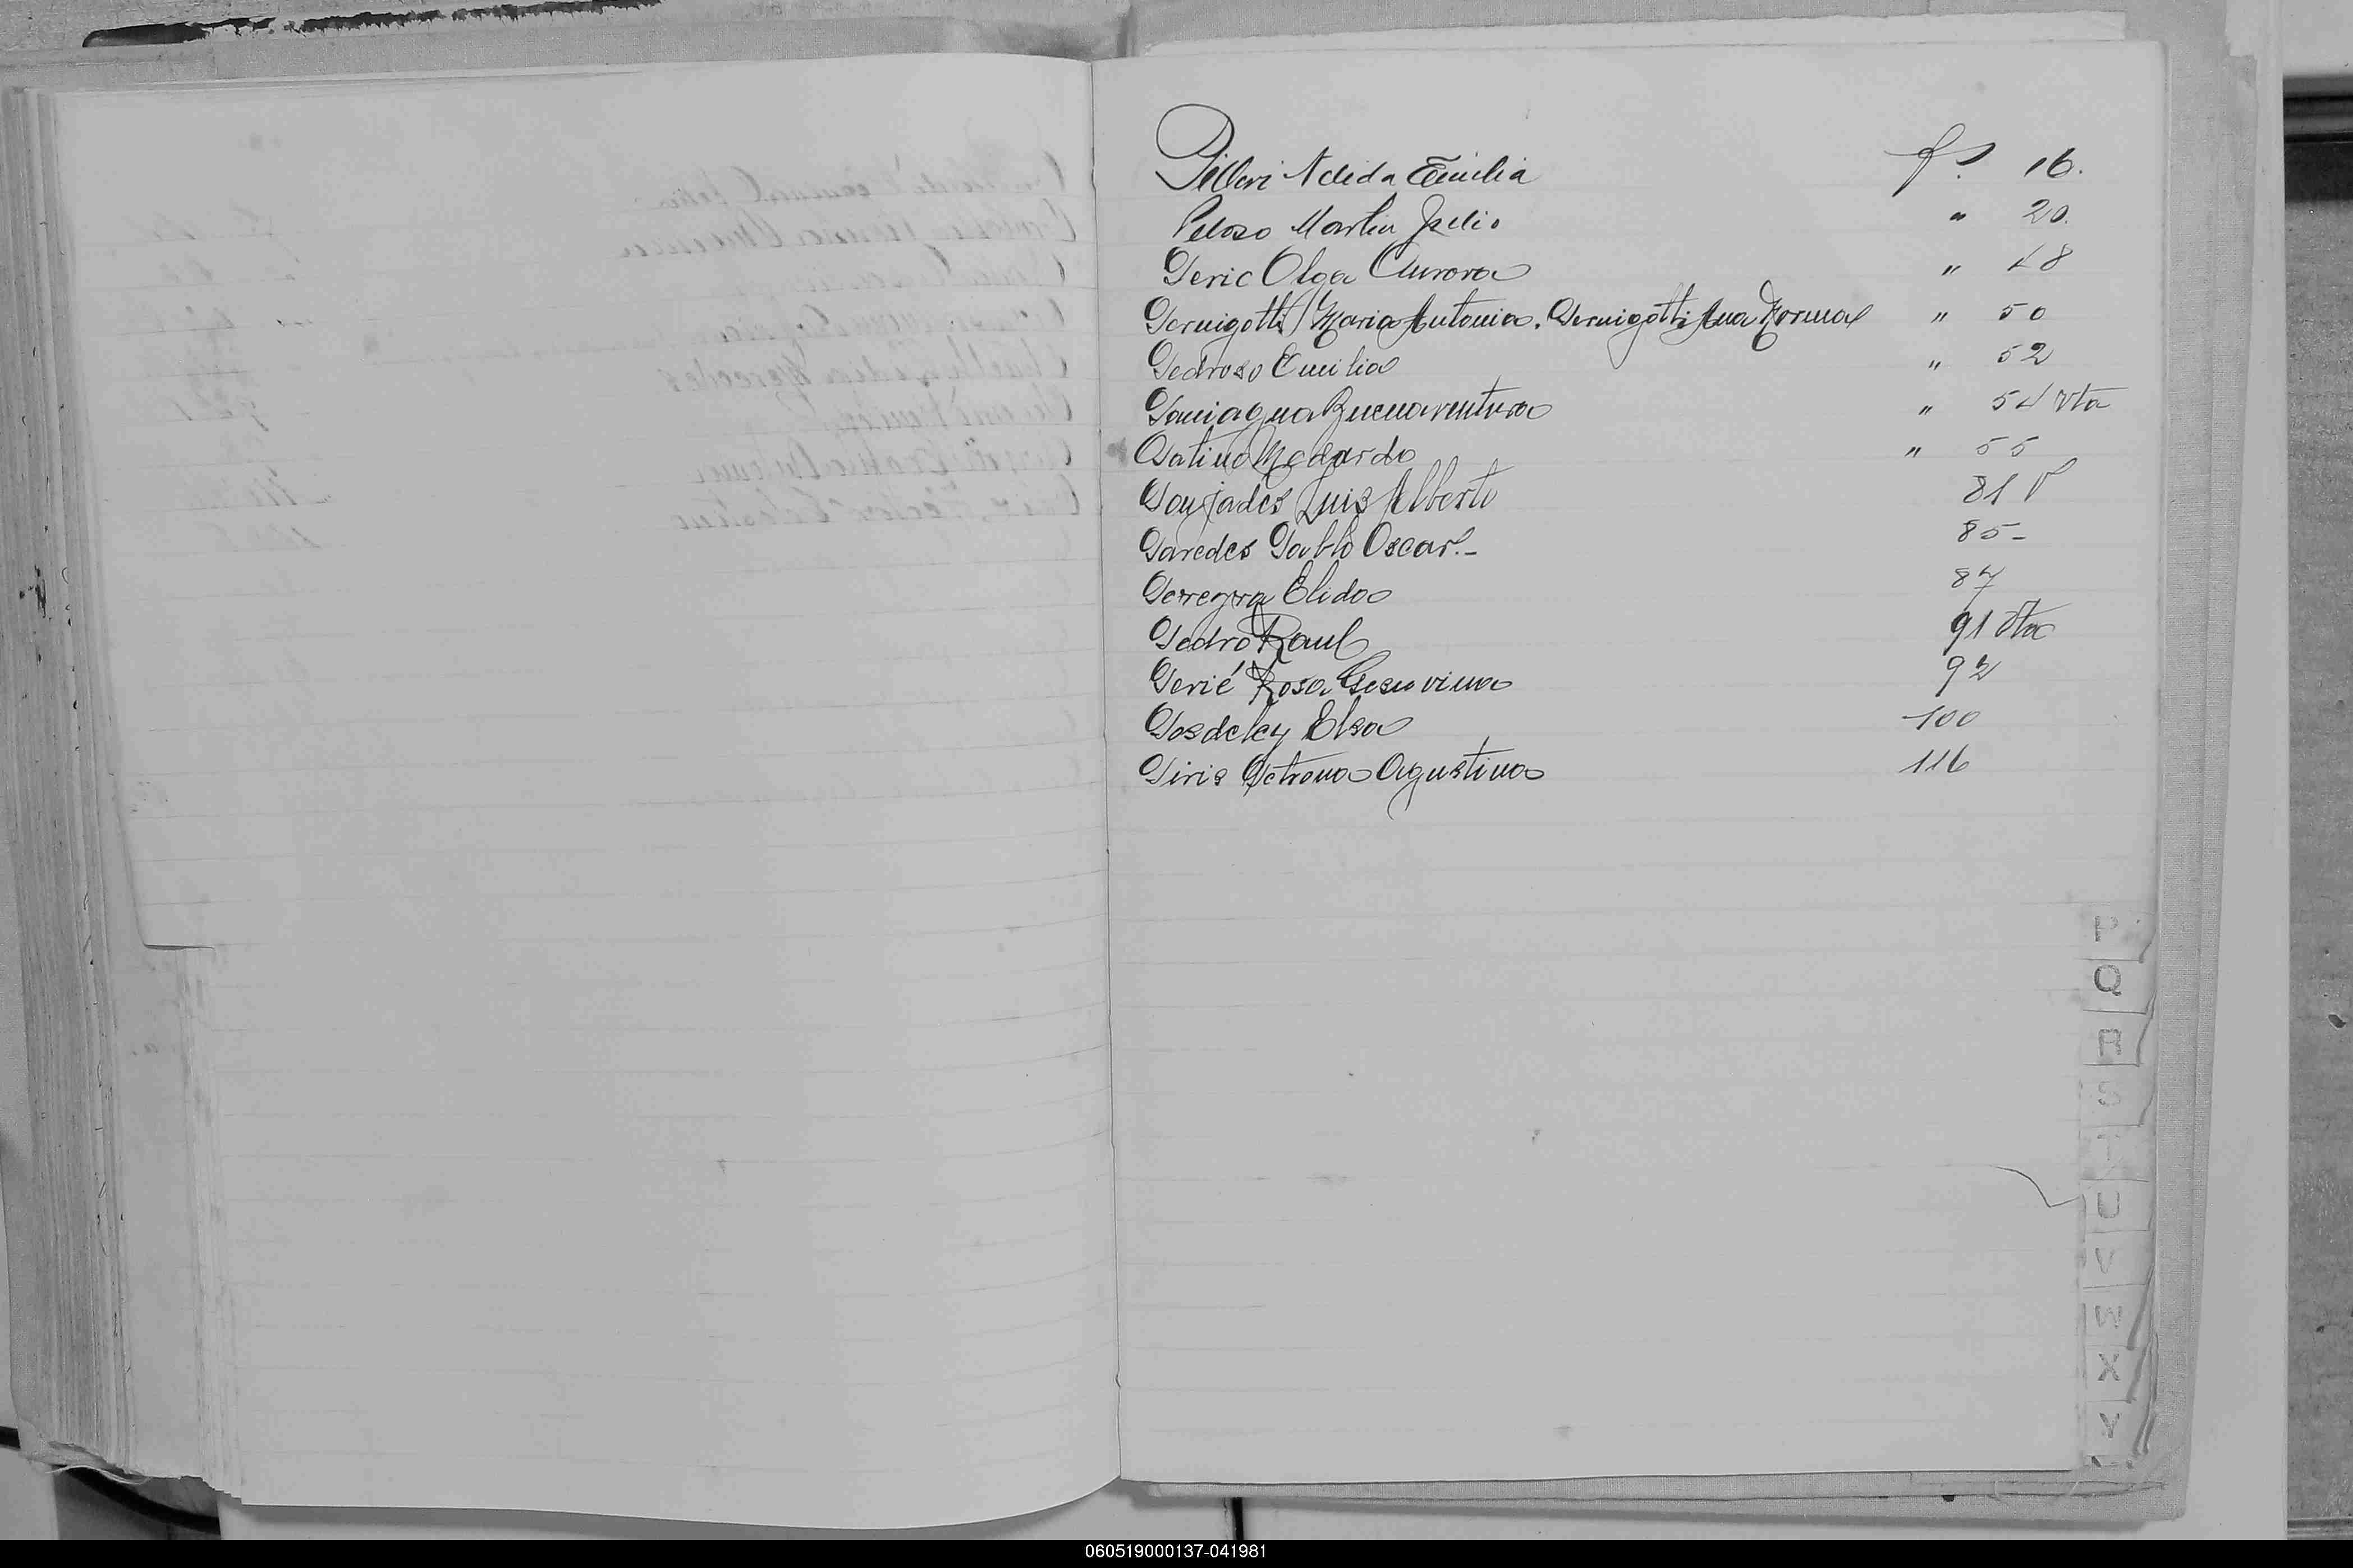 Pilleri Nelida Emilia fº 16.
Peloso Martin Julio " 20.
Peric Olga Aurora " 48
Pernigotti Maria Antonia. Pernigotti Ana Norma " 50
Pedroso Emilia " 52
Paniagua Buenaventura " 54 vta
Patiño Medardo " 55
Poujades Luis Alberto 81 v
Paredes Pablo Oscar.- 85-
Pereyra Elida 87
Pedro Raul 91 vta
Perié Rosa 92
Posdeley Elsa 100
Piris Petrona Agustina 116
P
Q
R
S
T
U
V
W
X
Y
060519000137-041981